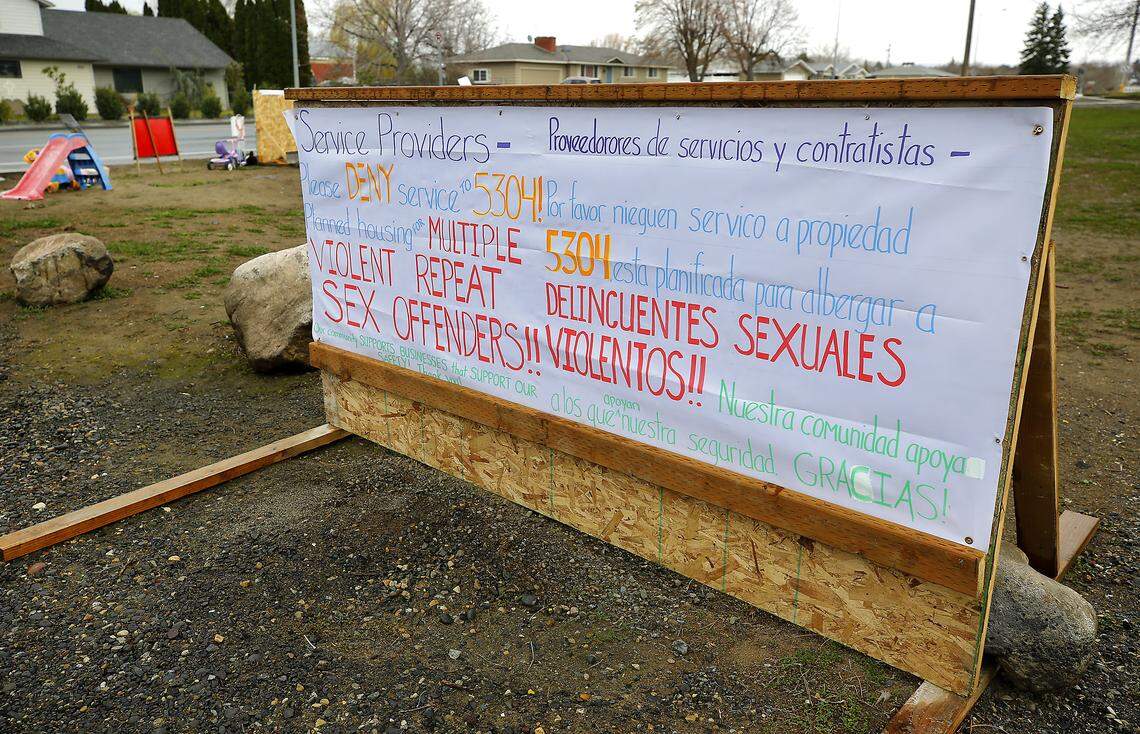 Service Providers -
Please DENY service TO 5304!
Planned housing FOR MULTIPLE
VIOLENT REPEAT
SEX OFFENDERS!!
Our community SUPPORTS BUSINESSES that SUPPORT OUR
SAFETY! Thank you!
Proveedorores de servicios y contratistas -
Por favor nieguen servico a propiedad
5304 esta planificada para albergar a
DELINCUENTES SEXUALES
VIOLENTOS!! Nuestra comunidad apoya
a los que apoyan nuestra seguridad. GRACIAS!